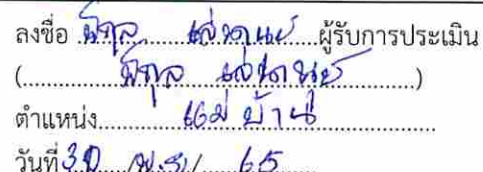 ลงชื่อ พิกุล ผู้รับการประเมิน
(พิกุล)
ตำแหน่ง แม่บ้าน
วันที่ 30 / พ.ย. / 65